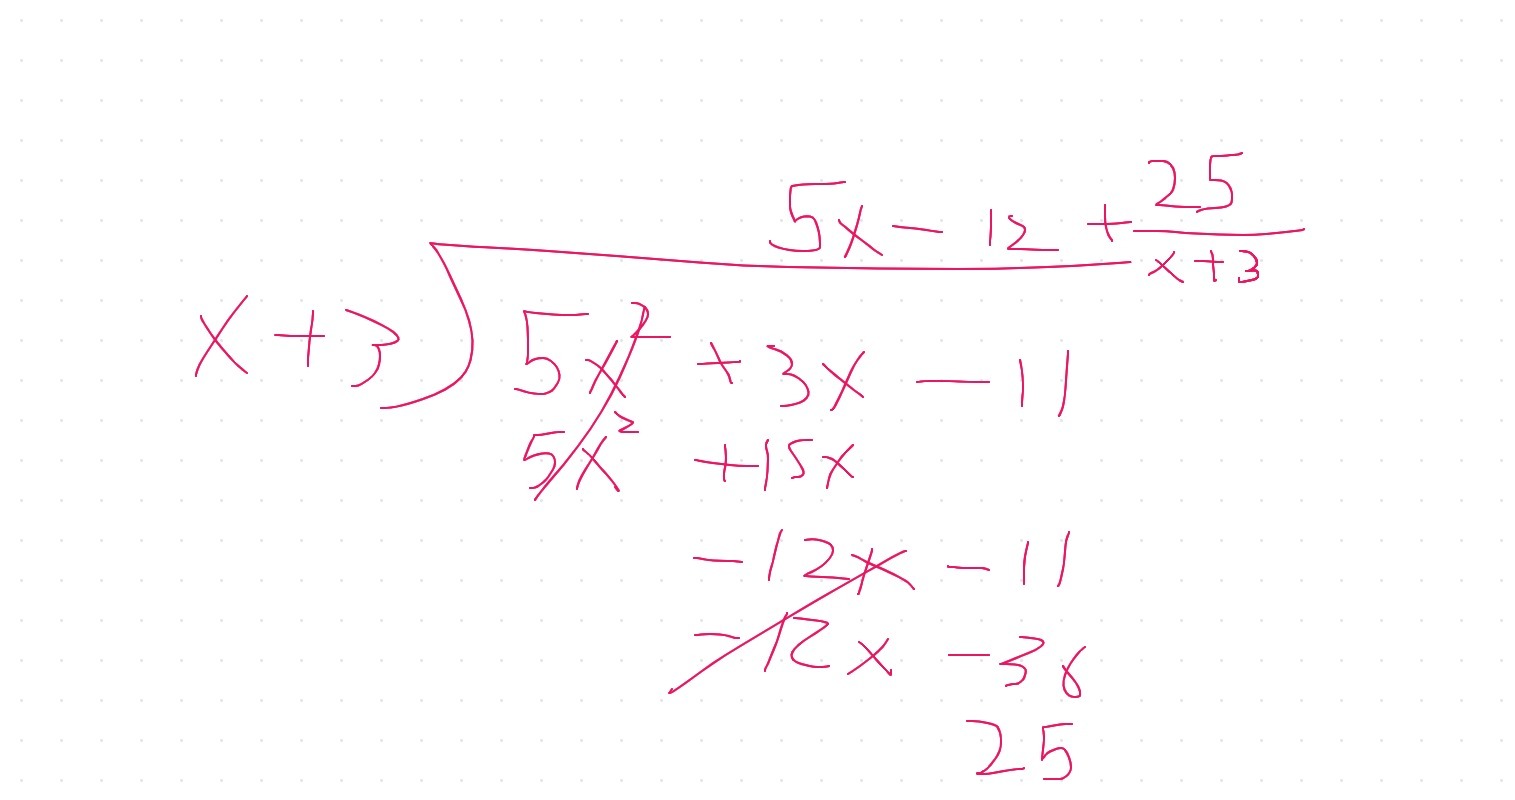 5x - 12 + 25/(x + 3)
x + 3 ) 5x² + 3x - 11
5x² + 15x
- 12x - 11
- 12x - 36
25